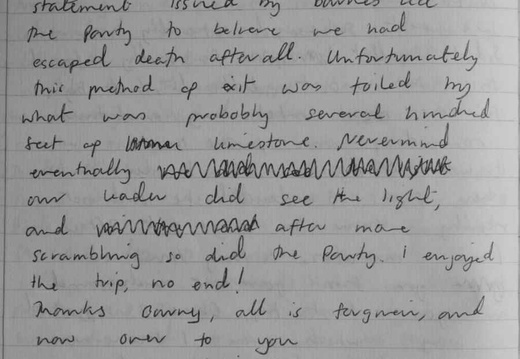 statement issued by
the Party to believe we had
escaped death after all. Unfortunately
this method of exit was foiled by
what was probably several hundred
feet of limestone. Nevermind
eventually
our leader did see the light,
and after more
scrambling so did the Party. I enjoyed
the trip, no end!
Thanks , all is forgiven, and
now over to you